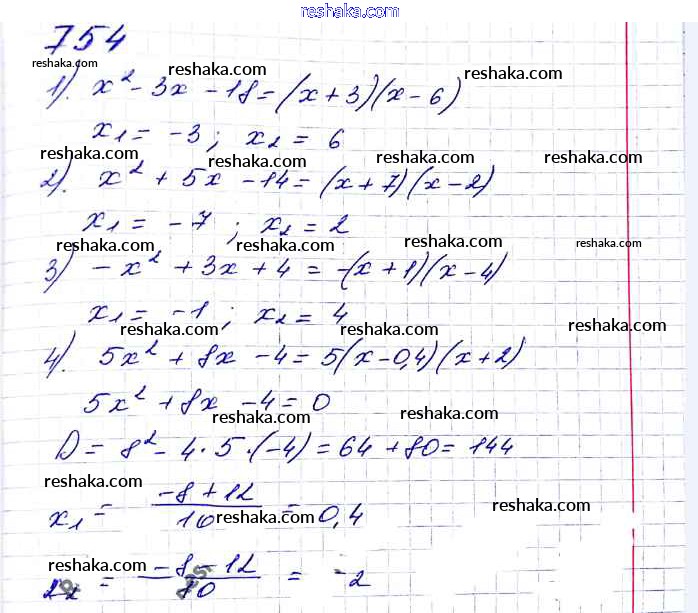 reshaka.com
754
reshaka.com reshaka.com reshaka.com
1). x² - 3x - 18 = (x + 3)(x - 6)
x₁ = -3; x₂ = 6
reshaka.com reshaka.com reshaka.com reshaka.com
2). x² + 5x - 14 = (x + 7)(x - 2)
x₁ = -7; x₂ = 2
reshaka.com reshaka.com reshaka.com reshaka.com
3) -x² + 3x + 4 = -(x + 1)(x - 4)
x₁ = -1; x₂ = 4
reshaka.com reshaka.com reshaka.com
4). 5x² + 8x - 4 = 5(x - 0,4)(x + 2)
5x² + 8x - 4 = 0
reshaka.com reshaka.com
D = 8² - 4·5·(-4) = 64 + 80 = 144
reshaka.com
x₁ = (-8 + 12)/10 = 0,4
reshaka.com reshaka.com
reshaka.com
x₂ = (-8 - 12)/10 = -2